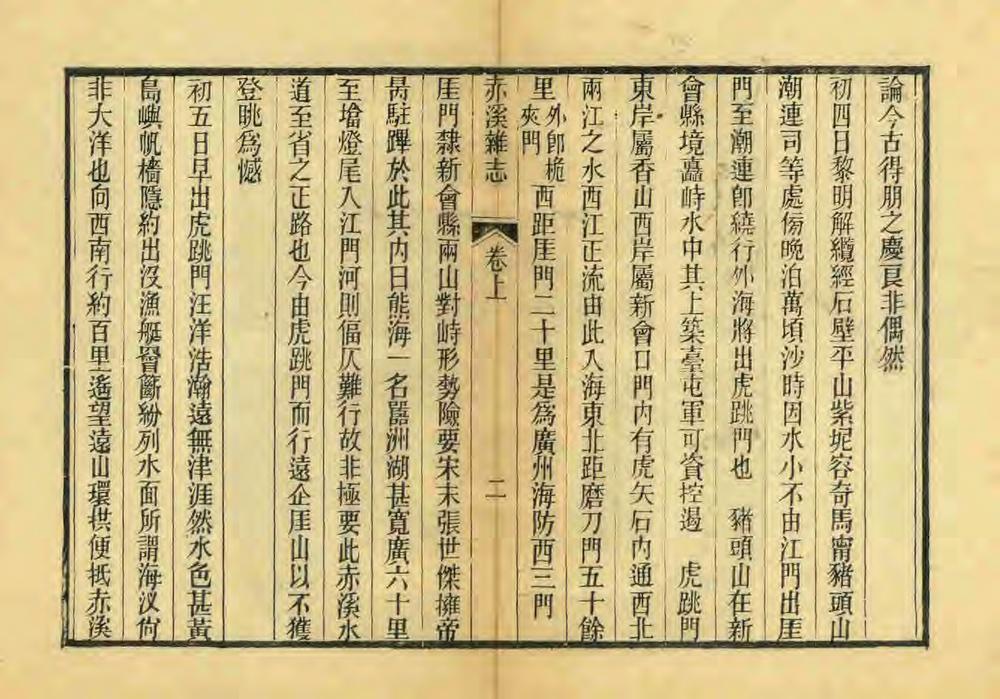 論今古得朋之慶良非偶然
初四日黎明解纜經石壁平山紫坭容奇馬甯豬頭山
潮連司等處傍晚泊萬頃沙時因水小不由江門出厓
門至潮連卽繞行外海將出虎跳門也　豬頭山在新
會縣境矗峙水中其上築臺屯軍可資控遏　虎跳門
東岸屬香山西岸屬新會口門內有虎矢石內通西北
兩江之水西江正流由此入海東北距磨刀門五十餘
里外卽桅夾門西距厓門二十里是爲廣州海防西三門
赤溪雜志　卷上　二
厓門隸新會縣兩山對峙形勢險要宋末張世傑擁帝
昺駐蹕於此其內曰熊海一名嚣洲湖甚寬廣六十里
至墖燈尾入江門河則偪仄難行故非極要此赤溪水
道至省之正路也今由虎跳門而行遠企厓山以不獲
登眺爲憾
初五日早出虎跳門汪洋浩瀚遠無津涯然水色甚黃
島嶼帆檣隱約出沒漁艇罾籪紛列水面所謂海汊尙
非大洋也向西南行約百里遙望遠山環拱便抵赤溪